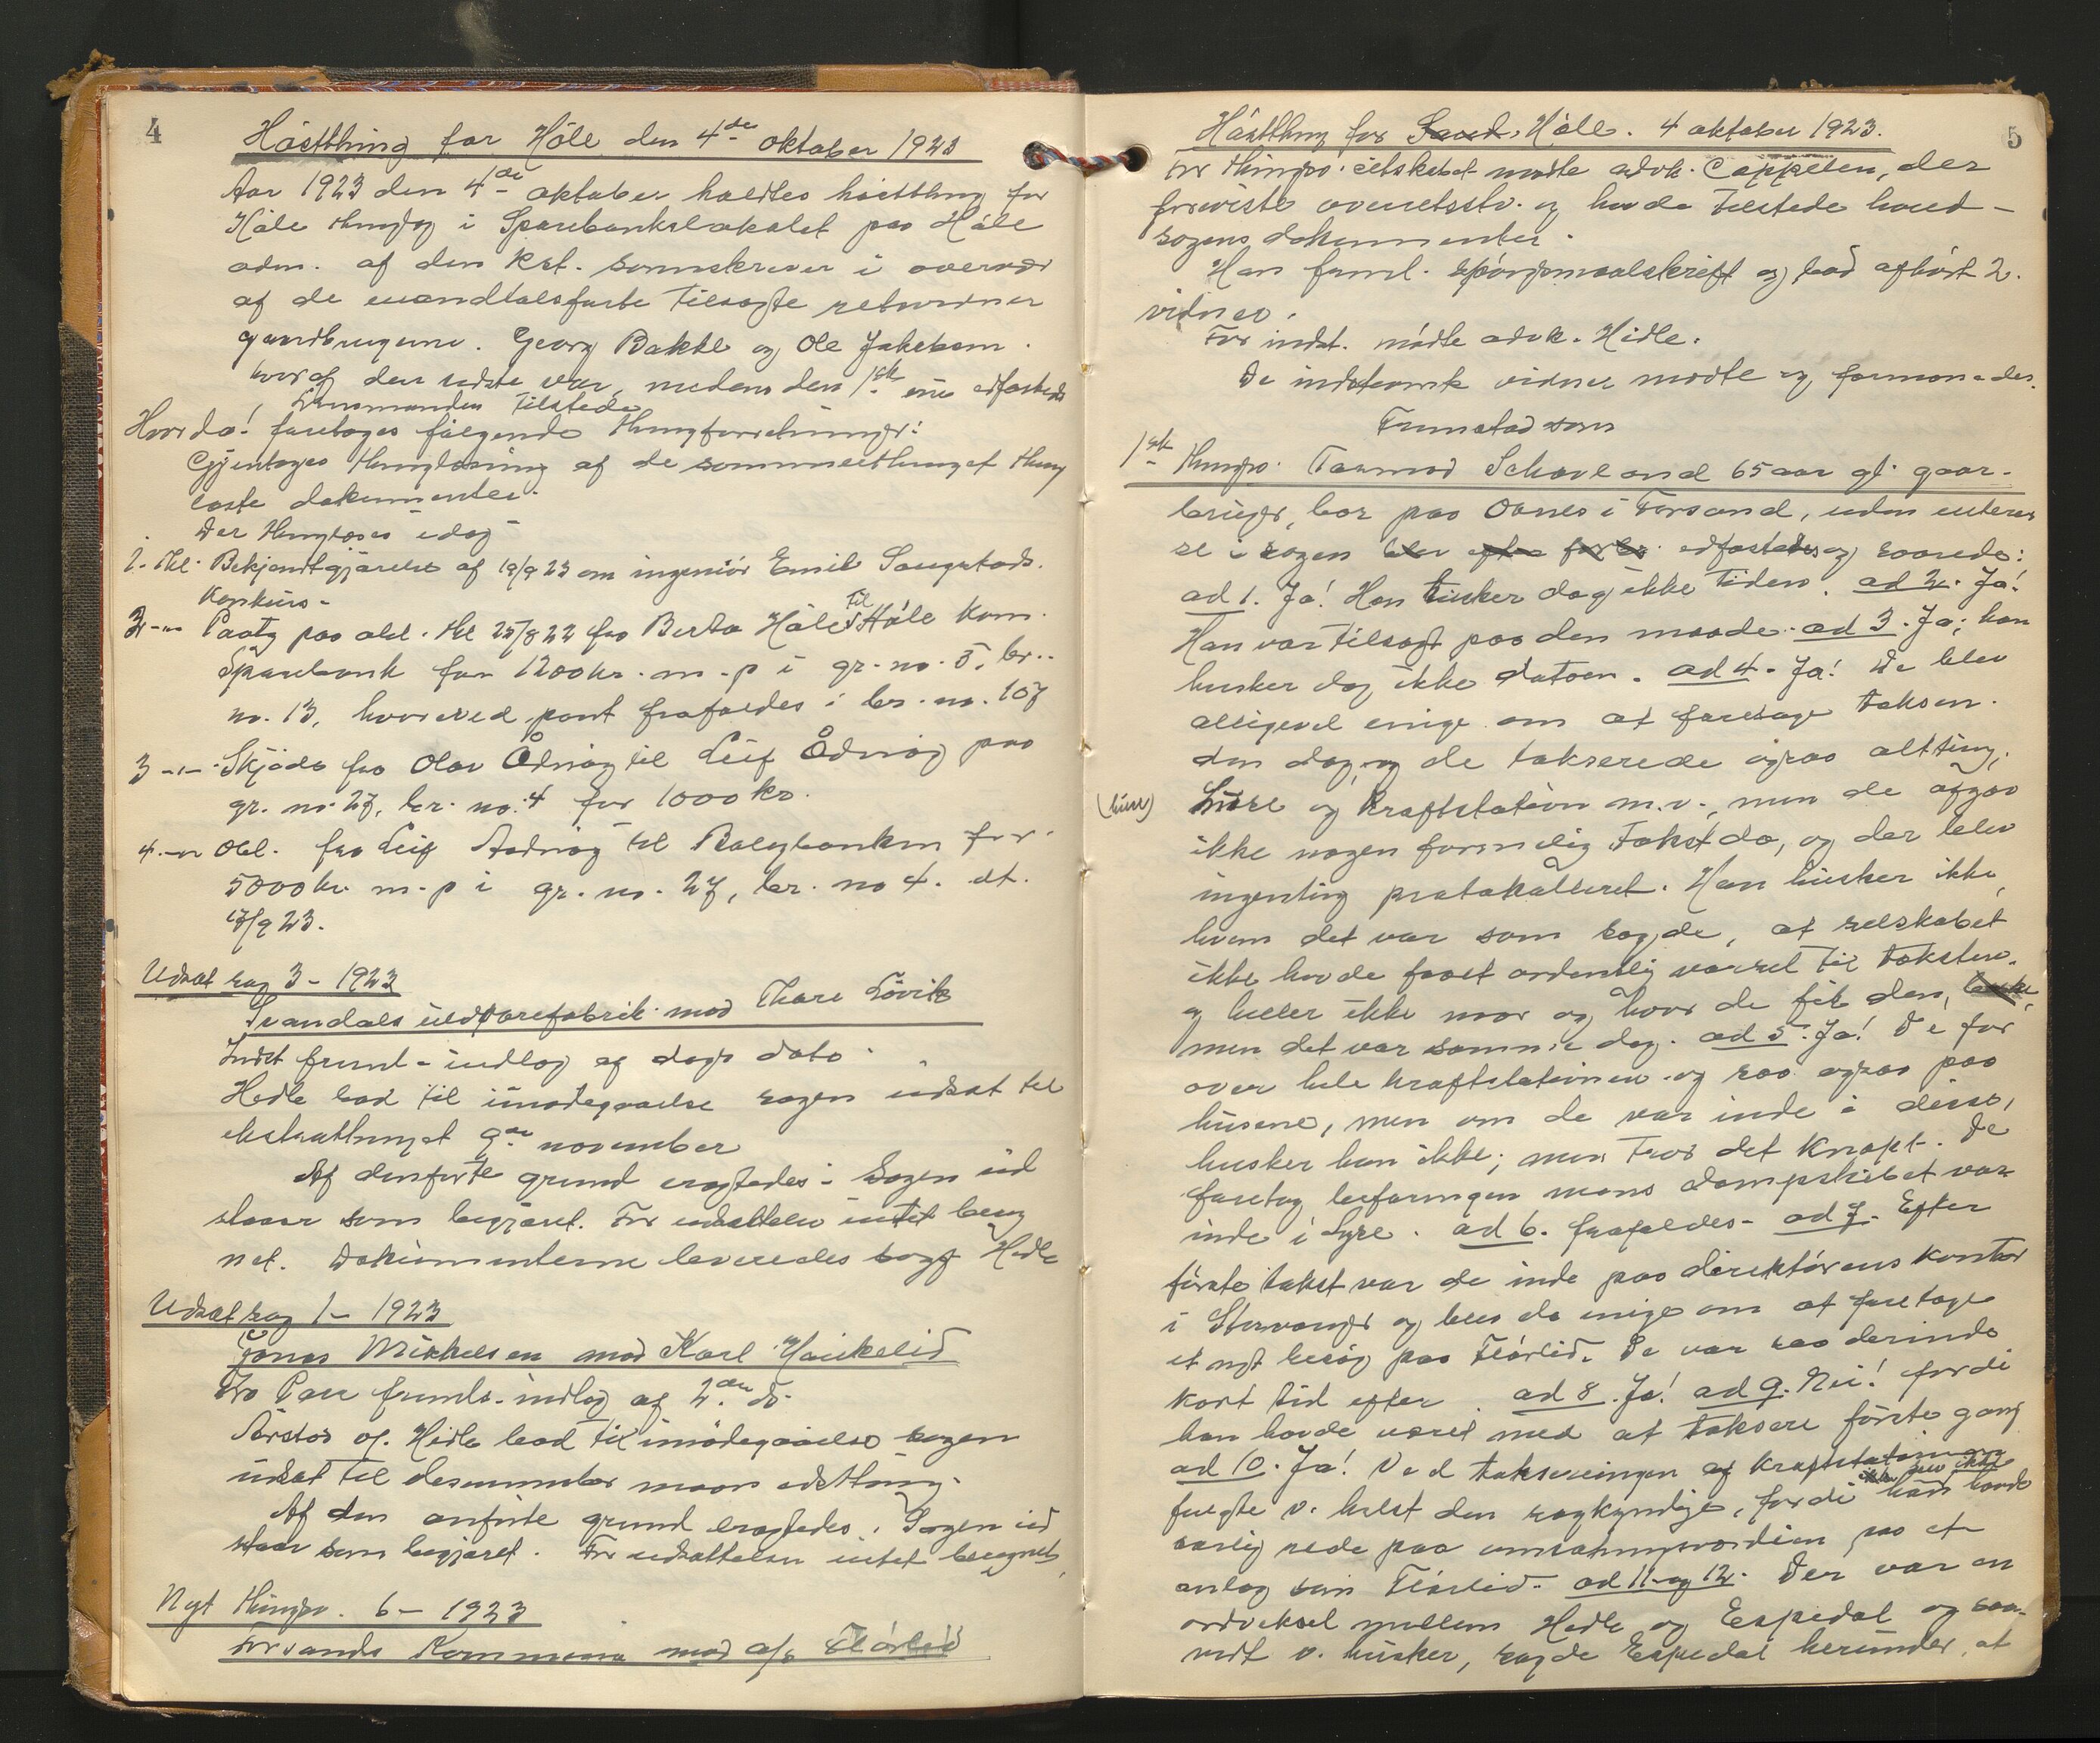 4
Höstthing for Höle den 4de oktober 1923
Aar 1923 den 4de oktober holdtes hösttthing for
Höle thinglag i Sparebankslokalet paa Höle
adm. af den kst. sorenskriver i overvær
af de mandtalsførte tilsagte retsvidner
gaardbrugerne. Georg Bakke og Ole Jakobsen.
hvoraf den sidste var, medens den 1ste nu edfæstedes
Lensmanden tilstede
Hvorda! foretoges fölgende thingforretninger:
Gjentages thinglæsning af de sommertthinget thing
læste dokumenter.
Der thinglæses idag
1. Thl. Bekjendtgjörelse af 19/9 23 om ingeniör Emil Saugstads
Konkurs-
2 -"- Paateg paa obl. thl 25/8 22 fra Berta Höle til Höle kom.
Sparebank for 1200 kr. m. p i gr. no. 5, br.
no. 13, hvorved pant frafaldes i br. no. 107
3 -"- Skjöde fra Olav Ådnöy til Leif Ådnöy paa
gr. no. 27, br. no. 4 for 1000 kr.
4. -"- Obl. fra Leif Aadnöy til Boligbanken for
5000 kr. m. p i gr. no. 27, br. no 4. dt.
17/9 23.
Udsat sag 3 - 1923
uldvarefabrik mod Thore Lövik
Indst freml. indlæg af dags dato.
Hidle bad til imødegaaelse sagen udsat til
ekstratthinget 9de november
Af denførte grund eragtedes: Sagen ud
staar som begjæret. For udsættelse intet bereg
net. Dokumenterne leveredes sagf Hidle
Udsat sag 1 - 1923
Jonas Mikkelsen mod Karl Haukelid
Fra Paee fremls. indlæg af 2den ds.
Aarstad of. Hidle bad til imødegaaelse sagen
udsat til desember maaneds thing.
Af den anførte grund eragtedes: Sagen ud
staar som begjæret. For udsættelsen intet beregnet.
Nyt thingsv. 6 - 1923
Forsands Kommune mod a/s Flörlid
5
Höstthing for Sand. Höle. 4 oktober 1923.
For thingsvidetskabet mødte advok. Cappelen, der
foreviste overretsstv. og havde tilstede hoved-
sagens dokumenter.
Han freml. spörgsmaalskrift og bad afhört 2.
vidner.
For indst. mødte advok. Hidle.
De indstevnte vidner mødte og formanedes.
Fremstod som
1ste thingsv. Tormod Schaveland 65 aar gl. gaar-
bruger, bor paa Oanes i Forsand, uden interes
se i sagen blev efter forl. edfæstedes og svarede:
ad 1. Ja! Han husker dog ikke tiden. ad 2. Ja!
Han var tilsagt paa den maade. ad 3. Ja; han
husker dog ikke datoen. ad 4. Ja! De blev
alligevel enige om at foretage taksten.
den dag, og de takserede ogsaa altting,
(huse) huse og kraftstation m.v., men de afgav
ikke nogen formelig takst da, og der blev
ingenting protokolleret. Han husker ikke
hvem det var som sagde, at selskabet
ikke havde faaet ordentlig varsel til taksten,
og heller ikke naar og hvor de fik den,
men det var samme dag. ad 5. Ja! De for
over hele kraftstationen og saa ogsaa paa
husene, men om de var inde i disse,
husker han ikke; men tror det knapt. De
foretog befaringen mens dampskibet var
inde i Lyse. ad 6. frafaldes- ad 7. Efter
förste takst var de inde paa direktörens kontor
i Stavanger og blev da enige om at foretage
et nyt besög paa Flörlid. De var saa derinde
kort tid efter. ad 8. Ja! ad 9. Nei! fordi
han havde været med at taksere förste gang
ad 10. Ja! Ved takseringen af kraftstationen
fulgte v. helst den sagkyndige, fordi han ikke havde
særlig rede paa omsætningsværdien paa et
anlæg som Flörlid. ad 11 og 12. Der var en
ordveksel mellem Hidle og Espedal og saa-
vidt v. husker, sagde Espedal herunder, at